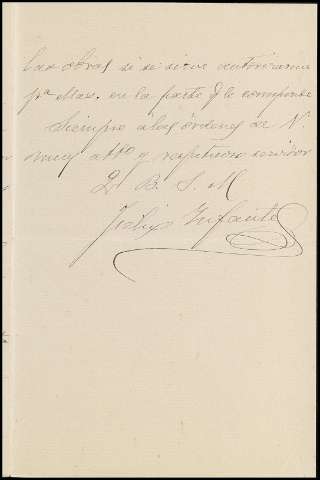 las obras si se sirve autorizarme
pª ellas. en la parte q̃ le comprende
Siempre a las órdenes de V.
muy atto y respetuoso servidor
Q. B. S. M
Felix Infante